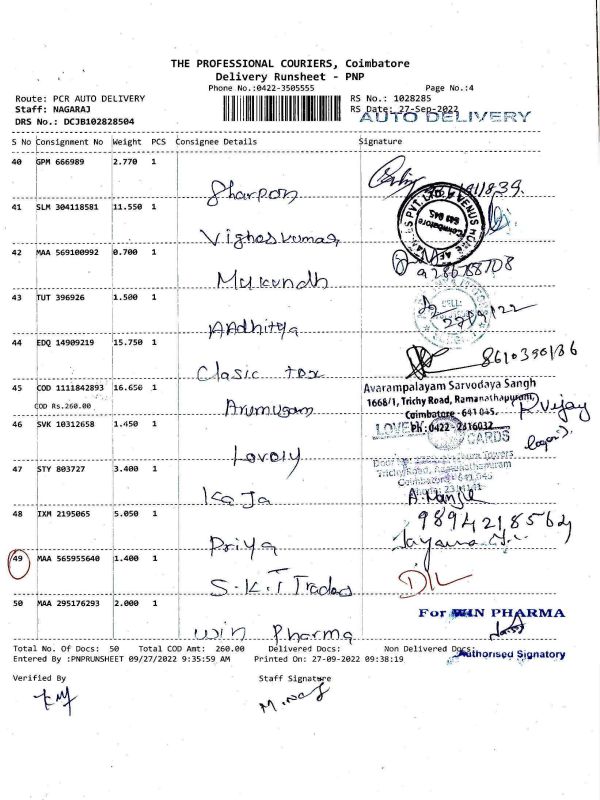 THE PROFESSIONAL COURIERS, Coimbatore
Delivery Runsheet - PNP
Phone No.:0422-3505555 Page No.:4
Route: PCR AUTO DELIVERY RS No.: 1028285
Staff: NAGARAJ RS Date: 27-Sep-2022
DRS No.: DCJB102828504 AUTO DELIVERY
S No Consignment No Weight PCS Consignee Details Signature
40 GPM 666989 2.770 1
Sharpon
41 SLM 304118581 11.550 1
Vigheskumar
42 MAA 569100992 0.700 1
Mukundh
43 TUT 396926 1.500 1
AAdhitya 27/9/22
44 EDQ 14909219 15.750 1
Clasic tex 8610390136
45 COD 1111842893 16.650 1 Avarampalayam Sarvodaya Sangh
1668/1, Trichy Road, Ramanathapuram,
COD Rs.260.00 Arumugam Coimbatore - 641 045. R. Vijay
46 SVK 10312658 1.450 1 Ph: 0422 - 2316032
LOVELY CARDS
Lovely
Trichy Road, Ramanathapuram
47 STY 803727 3.400 1 Coimbatore - 641 045
Kaja
48 IXM 2195065 5.050 1 9894218562
Priya
49 MAA 565955640 1.400 1
S.K.T Trades D/L
50 MAA 295176293 2.000 1 For WIN PHARMA
Win Pharma
Total No. Of Docs: 50 Total COD Amt: 260.00 Delivered Docs: Non Delivered Docs:
Authorised Signatory
Entered By :PNPRUNSHEET 09/27/2022 9:35:59 AM Printed On: 27-09-2022 09:38:19
Verified By Staff Signature